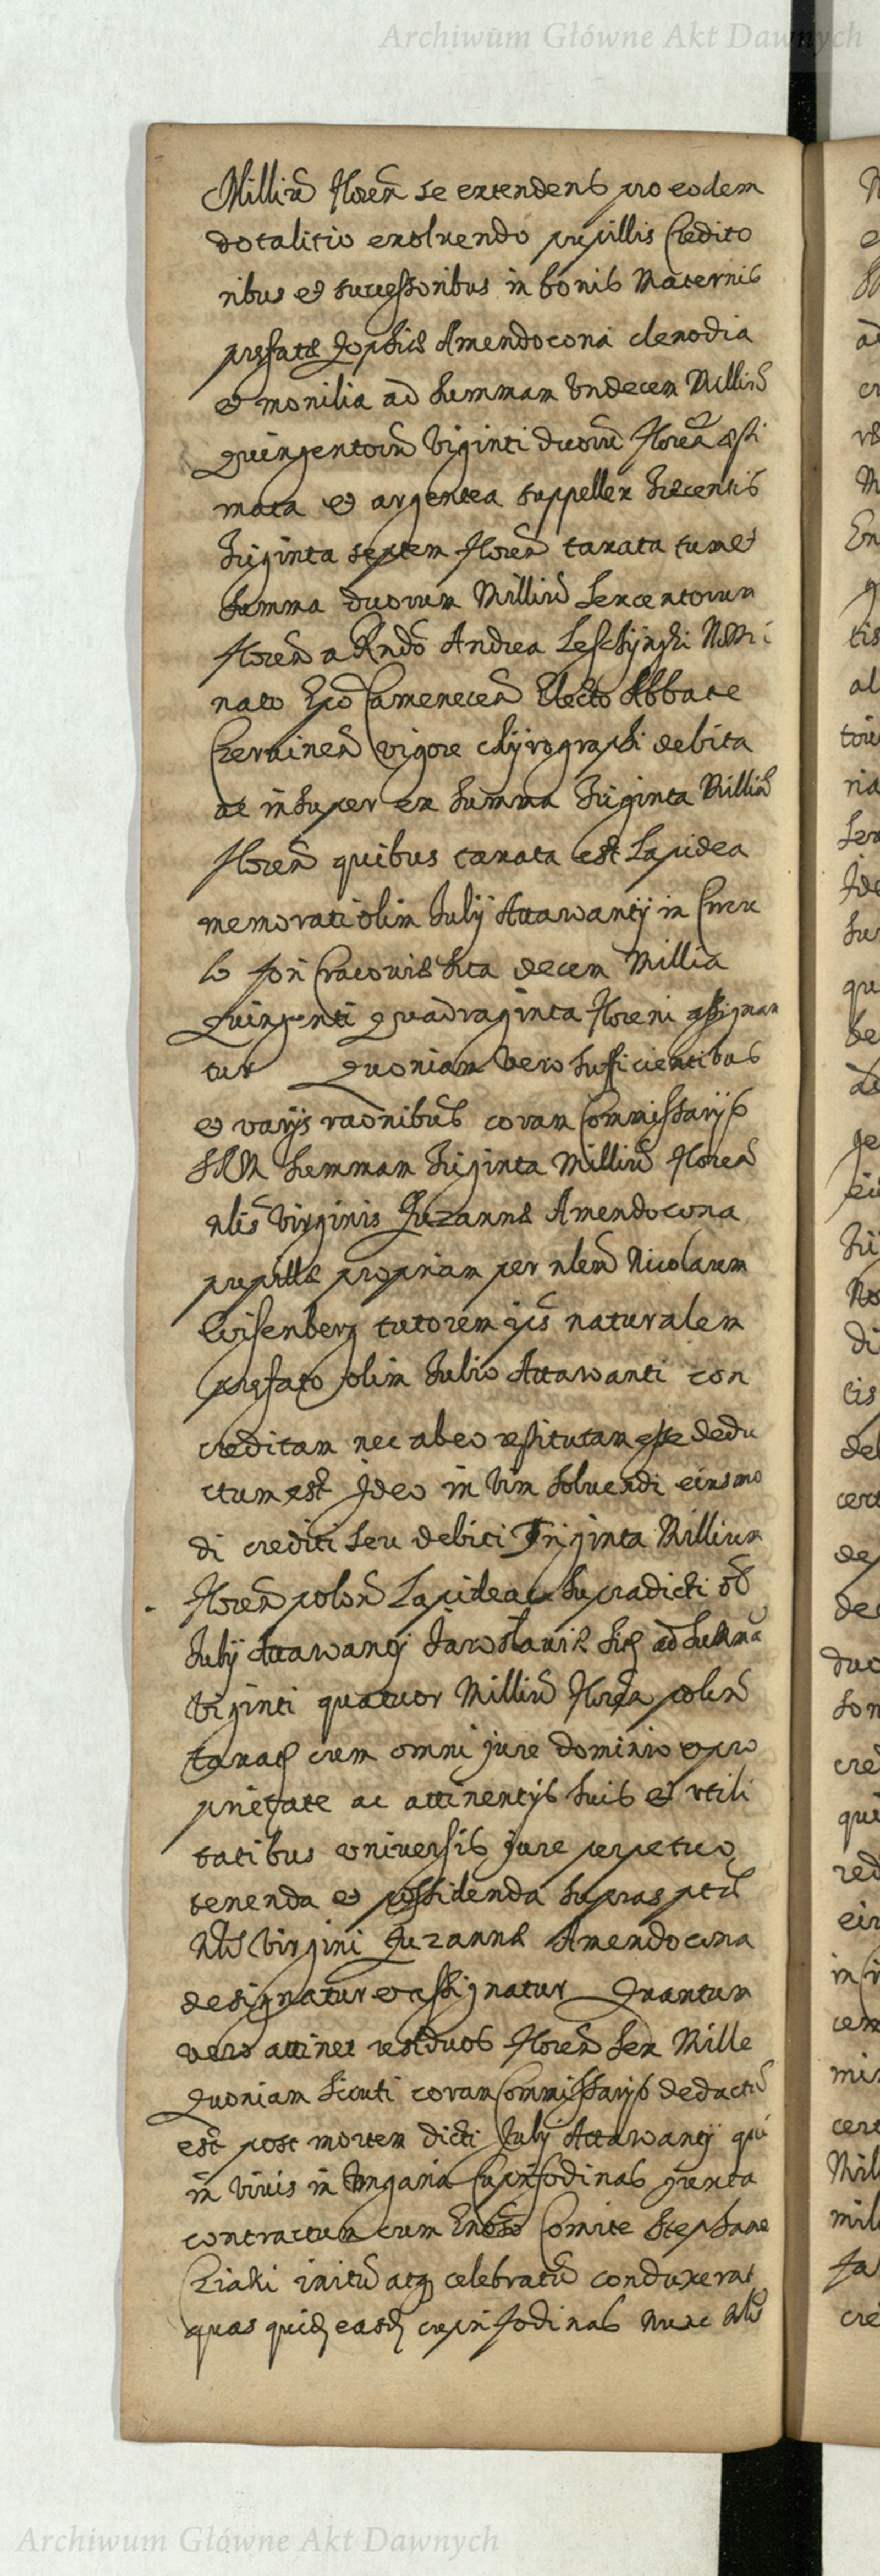 Archiwum Główne Akt Dawnych
Milliū Floreñ se extendens pro eodem
dotalitio exoluendo pupillis Credito
ribus et successoribus in bonis Maternis
præfatæ Zophiæ Amendocona clenodia
et monilia ad summam Vndecem Milliū
Quingentorū Viginti duorū Floreñ æsti
mata et argentea suppellex Trecentis
Triginta septem Floreñ taxata tum et
summa duorum Milliū Sexcentorum
Floreñ a Rndō Andrea Leschÿnski Nomi
nato Epō Cameneceñ Electo Abbate
Czerwineñ vigore chÿrographi debita
ac insuper ex summa Triginta Milliū
Floreñ quibus taxata est Lapidea
memorati olim Julÿ Attawantÿ in Circu
lo fori Cracoviæ sita decem Millia
Quingenti Quadraginta Floreni assignan
tur Quoniam vero sufficientibus
et varÿs raōnibus coram Commissarÿs
SRM summam Triginta Milliū Floreñ
nlis Virginis Zuzannæ Amendocona
pupillæ propriam per nlem Nicolaum
Eisenberg tutorem eius naturalem
præfato olim Julio Attawanti con
creditam nec ab eo restitutam esse dedu
ctum est Ideo in Vim soluendi eiusmo
di crediti seu debiti Triginta Millium
Floreñ poloñ Lapidea supradicti
Julÿ Attawantÿ Jaroslaviæ ad summā
Viginti quatuor Milliū Floreñ poloñ
taxata cum omni jure dominio et pro
prietate ac attinentÿs suis et vtili
tatibus vniversis jure perpetuo
tenenda et possidenda
Virgini Zuzannæ Amendocona
designatur et assignatur Quantum
vero attinet residuos Floreñ Sex Mille
Quoniam sicuti coram Commissarÿs deductū
est post mortem dicti Julÿ Attawantÿ qui
in vivis in Vngaria Cuprifodinas juxta
contractum cum Comite Stephano
Cziaki initū atq celebratū conduxerat
quas quidẽ easdẽ cuprifodinas nunc
Archiwum Główne Akt Dawnych